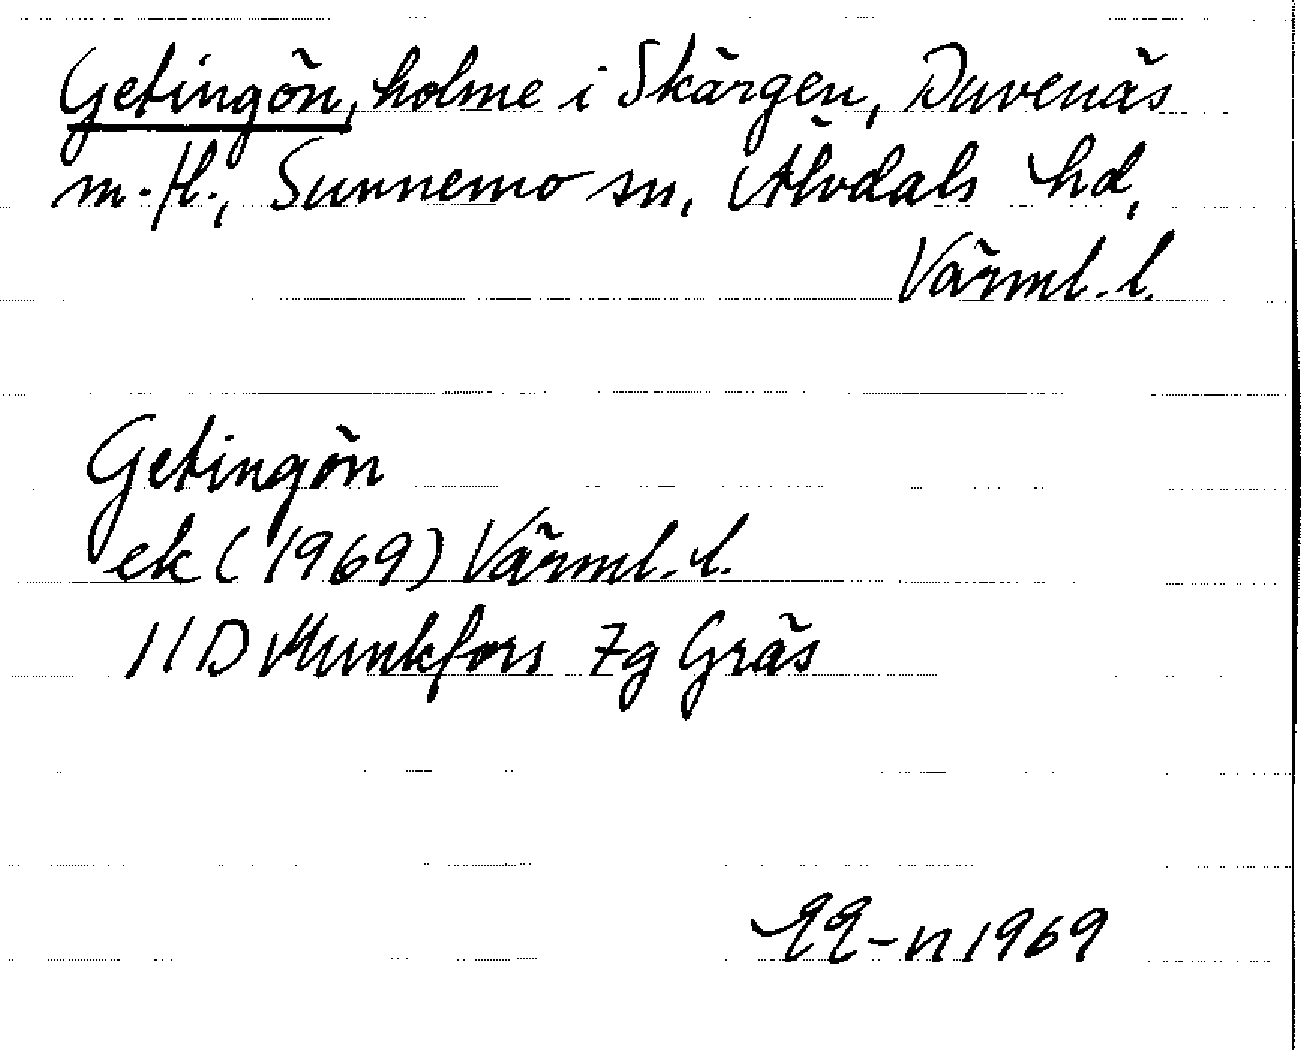 Getingön, holme i Skärgen, Duvenäs
m. fl., Sunnemo sn, Älvdals hd,
Värml. l.
Getingön
ek (1969) Värml. l.
11D Munkfors 7g Gräs
1969